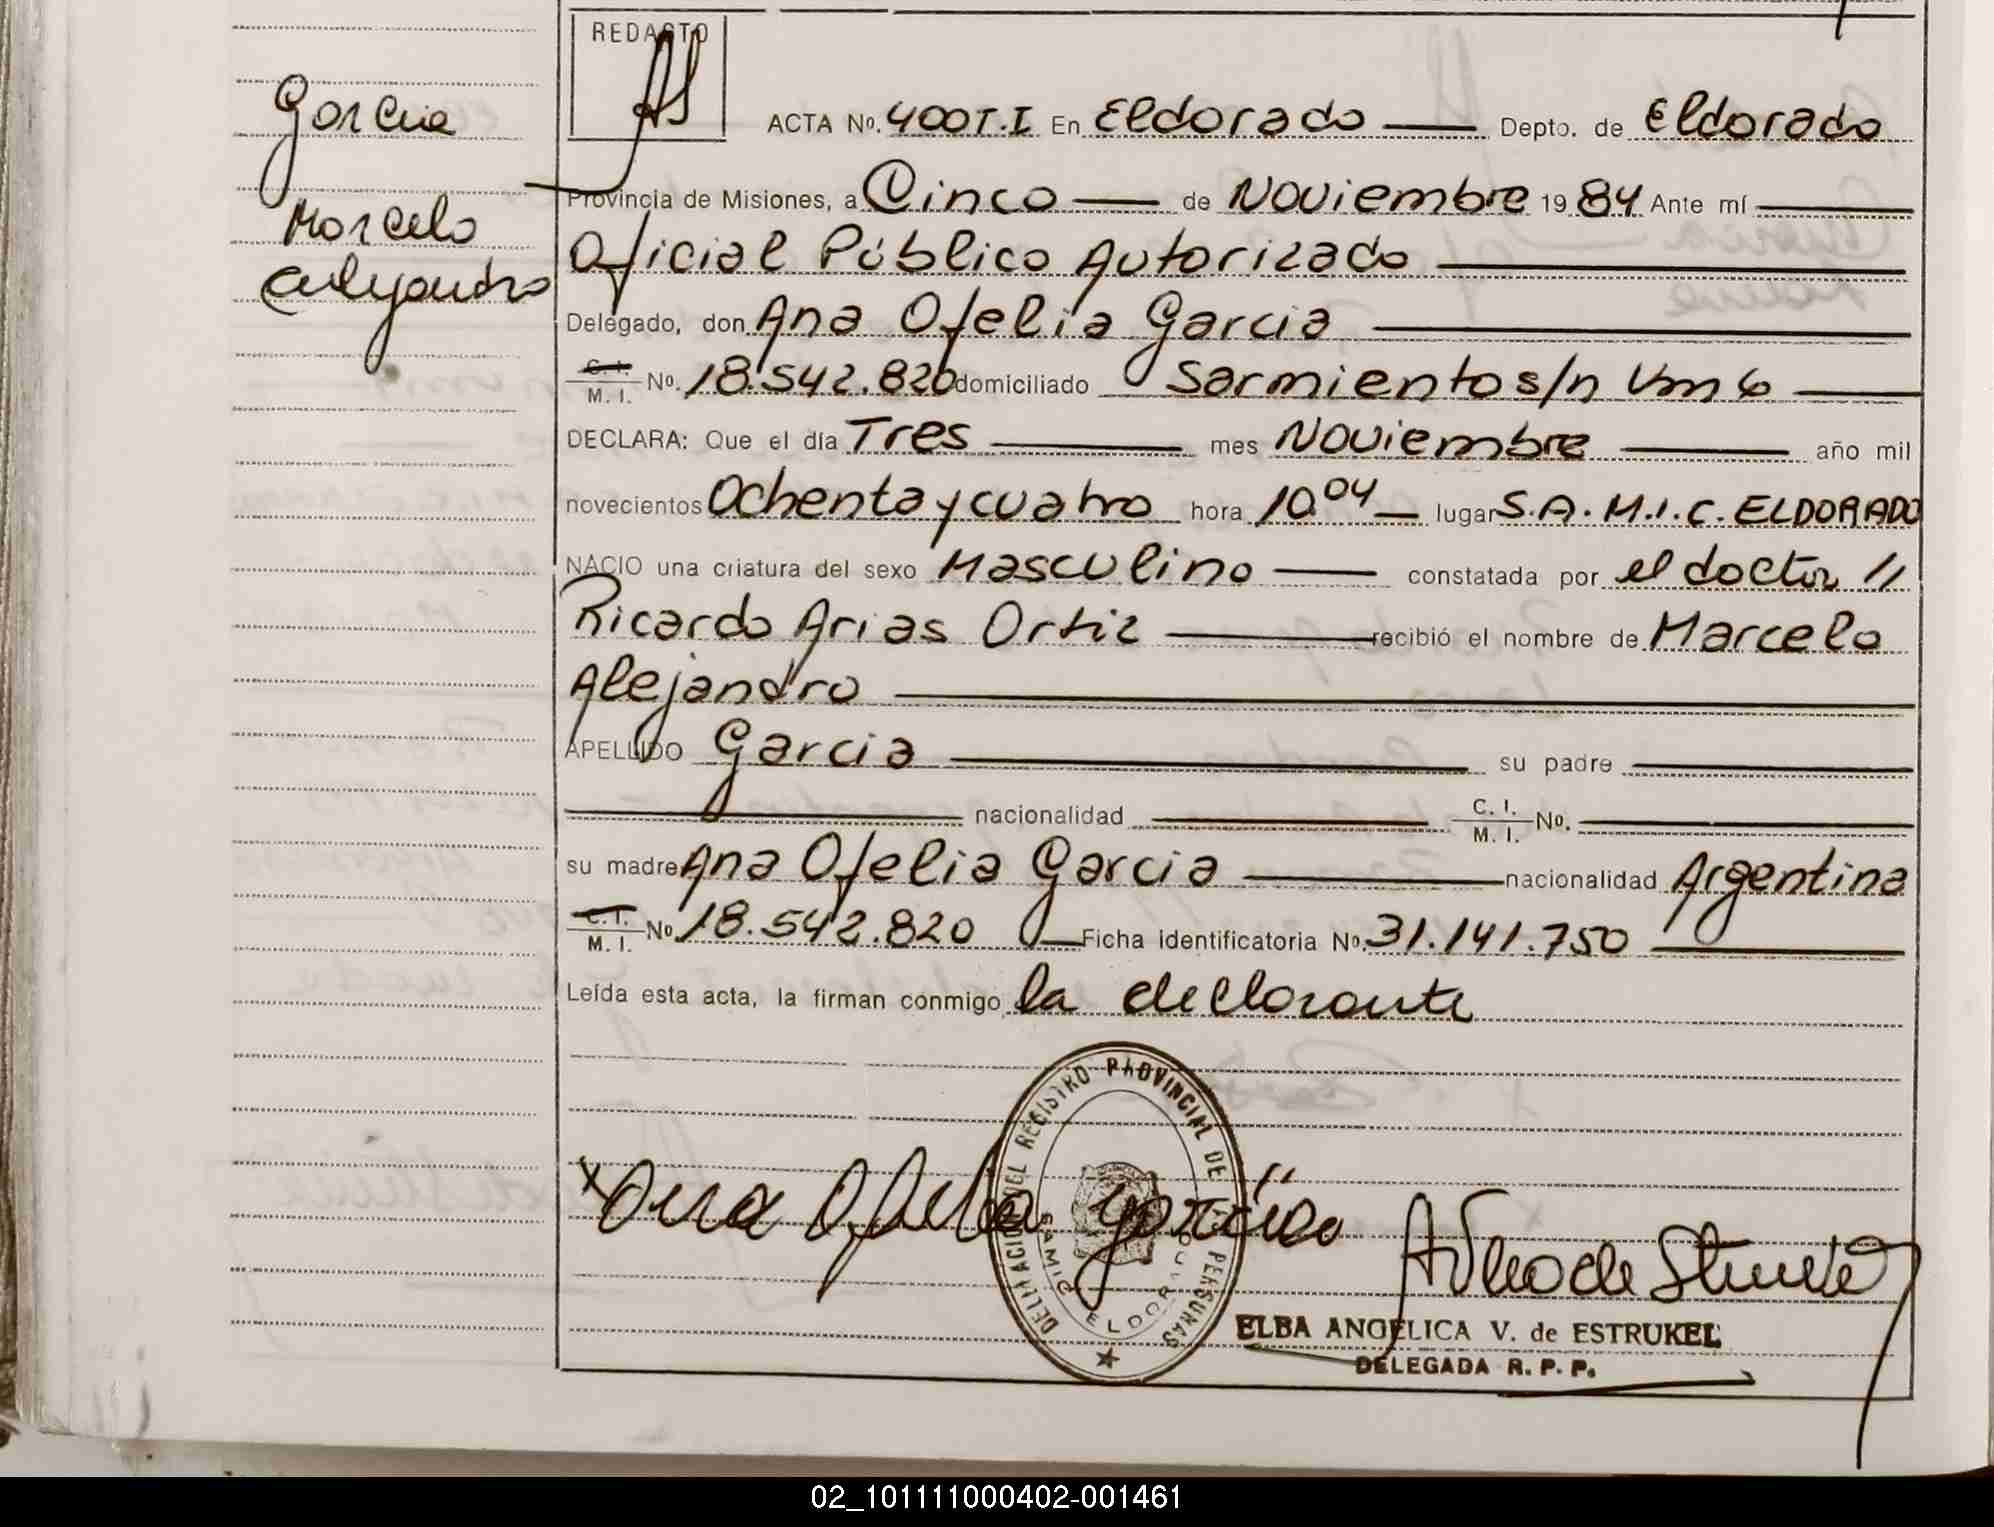 REDACTO
Garcia
Marcelo
Alejandro
ACTA No. 400 T.I En Eldorado Depto. de Eldorado
Provincia de Misiones, a Cinco de Noviembre 19 84 Ante mí
Oficial Público Autorizado
Delegado, don Ana Ofelia Garcia
C. I. M. I. No. 18.542.820 domiciliado Sarmiento s/n Km 6
DECLARA: Que el día Tres mes Noviembre año mil
novecientos Ochenta y cuatro hora 10.04 lugar S.A.M.I.C. ELDORADO
NACIO una criatura del sexo Masculino constatada por el doctor //
Ricardo Arias Ortiz recibió el nombre de Marcelo
Alejandro
APELLIDO Garcia su padre
nacionalidad C. I. M. I. No.
su madre Ana Ofelia Garcia nacionalidad Argentina
C. I. M. I. No 18.542.820 Ficha identificatoria No. 31.141.750
Leída esta acta, la firman conmigo la declarante
REGISTRO PROVINCIAL DE PERSONAS
SAMIC ELDORADO
x Ana Ofelia Garcia
ELBA ANGELICA V. de ESTRUKEL
DELEGADA R. P. P.
02_101111000402-001461